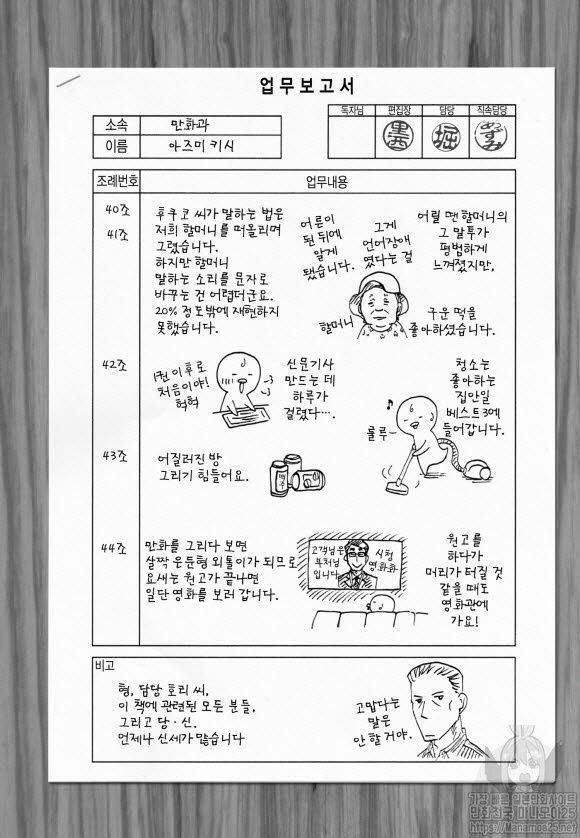 업무보고서
독자님 편집장 담당 직속담당
黒西 堀 あずみ
소속 만화과
이름 아즈미 키시
조례번호 업무내용
40조
41조
후쿠코 씨가 말하는 법은
저희 할머니를 떠올리며
그렸습니다.
하지만 할머니
말하는 소리를 문자로
바꾸는 건 어렵더군요.
20% 정도밖에 재현하지
못했습니다.
어릴 땐 할머니의
그 말투가
평범하게
느껴졌지만,
그게
언어장애
였다는 걸
어른이
된 뒤에
알게
됐습니다.
할머니
구운 떡을
좋아하셨습니다.
42조
1권 이후로
처음이야!
헉헉
신문기사
만드는 데
하루가
걸렸다….
청소는
좋아하는
집안일
베스트3에
들어갑니다.
룰루~
43조
어질러진 방
그리기 힘들어요.
맥주
44조
만화를 그리다 보면
살짝 은둔형 외톨이가 되므로
요새는 원고가 끝나면
일단 영화를 보러 갑니다.
고객님은
부처님
입니다
시청
영화화
원고를
하다가
머리가 터질 것
같을 때도
영화관에
가요!
비고
형, 담당 호리 씨,
이 책에 관련된 모든 분들,
그리고 당·신.
언제나 신세가 많습니다
고맙다는
말은
안 할 거야.
가장 빠른 일본만화사이트
만화천국 마나모아25
https://Manamoa25.net